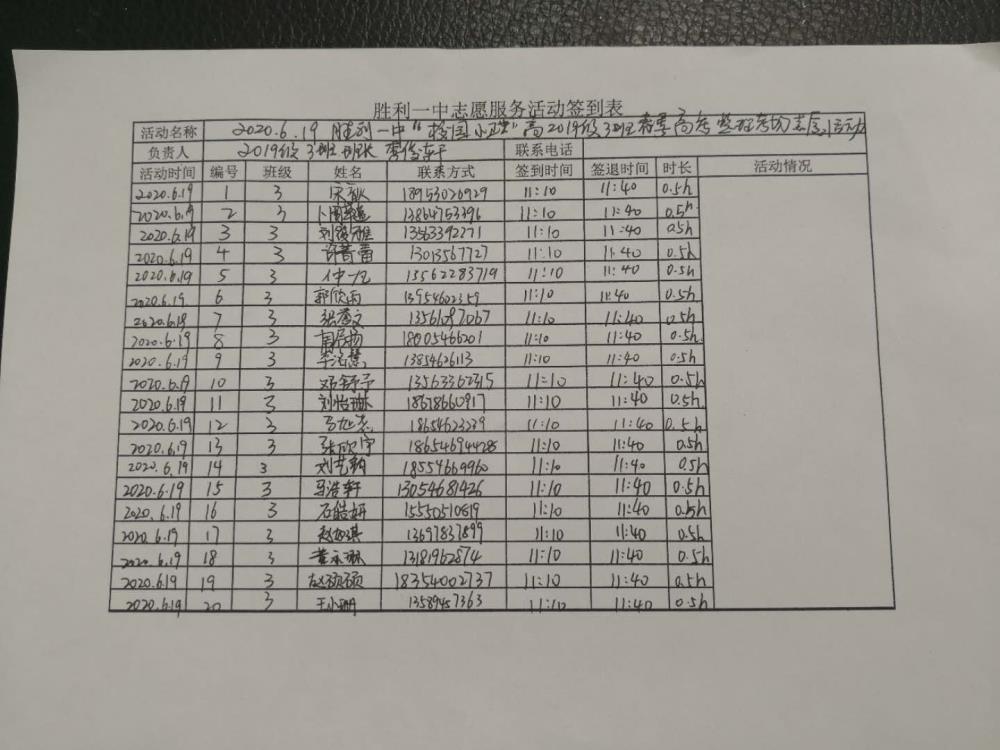 胜利一中志愿服务活动签到表
活动名称 2020.6.19 胜利一中"校园小卫士"高2019级3班春季高考整理考场志愿活动
负责人 2019级3班班长 联系电话
活动时间 编号 班级 姓名 联系方式 签到时间 签退时间 时长 活动情况
2020.6.19 1 3 18953026929 11:10 11:40 0.5h
2020.6.19 2 3 13864753396 11:10 11:40 0.5h
2020.6.19 3 3 13563392271 11:10 11:40 0.5h
2020.6.19 4 3 许菁蕾 13013567727 11:10 11:40 0.5h
2020.6.19 5 3 仲一凡 13562283719 11:10 11:40 0.5h
2020.6.19 6 3 郭欣雨 13954602359 11:10 11:40 0.5h
2020.6.19 7 3 13561087067 11:10 11:40 0.5h
2020.6.19 8 3 18005466201 11:10 11:40 0.5h
2020.6.19 9 3 13854626113 11:10 11:40 0.5h
2020.6.19 10 3 邓舒予 13563362315 11:10 11:40 0.5h
2020.6.19 11 3 刘怡琳 18678660917 11:10 11:40 0.5h
2020.6.19 12 3 18654623239 11:10 11:40 0.5h
2020.6.19 13 3 张欣宇 18654694428 11:10 11:40 0.5h
2020.6.19 14 3 18554669960 11:10 11:40 0.5h
2020.6.19 15 3 马浩轩 13054681426 11:10 11:40 0.5h
2020.6.19 16 3 石皓妍 15550510819 11:10 11:40 0.5h
2020.6.19 17 3 13697837899 11:10 11:40 0.5h
2020.6.19 18 3 董永琳 13181962874 11:10 11:40 0.5h
2020.6.19 19 3 赵硕硕 18354002737 11:10 11:40 0.5h
2020.6.19 20 3 王小珊 13589457363 11:10 11:40 0.5h